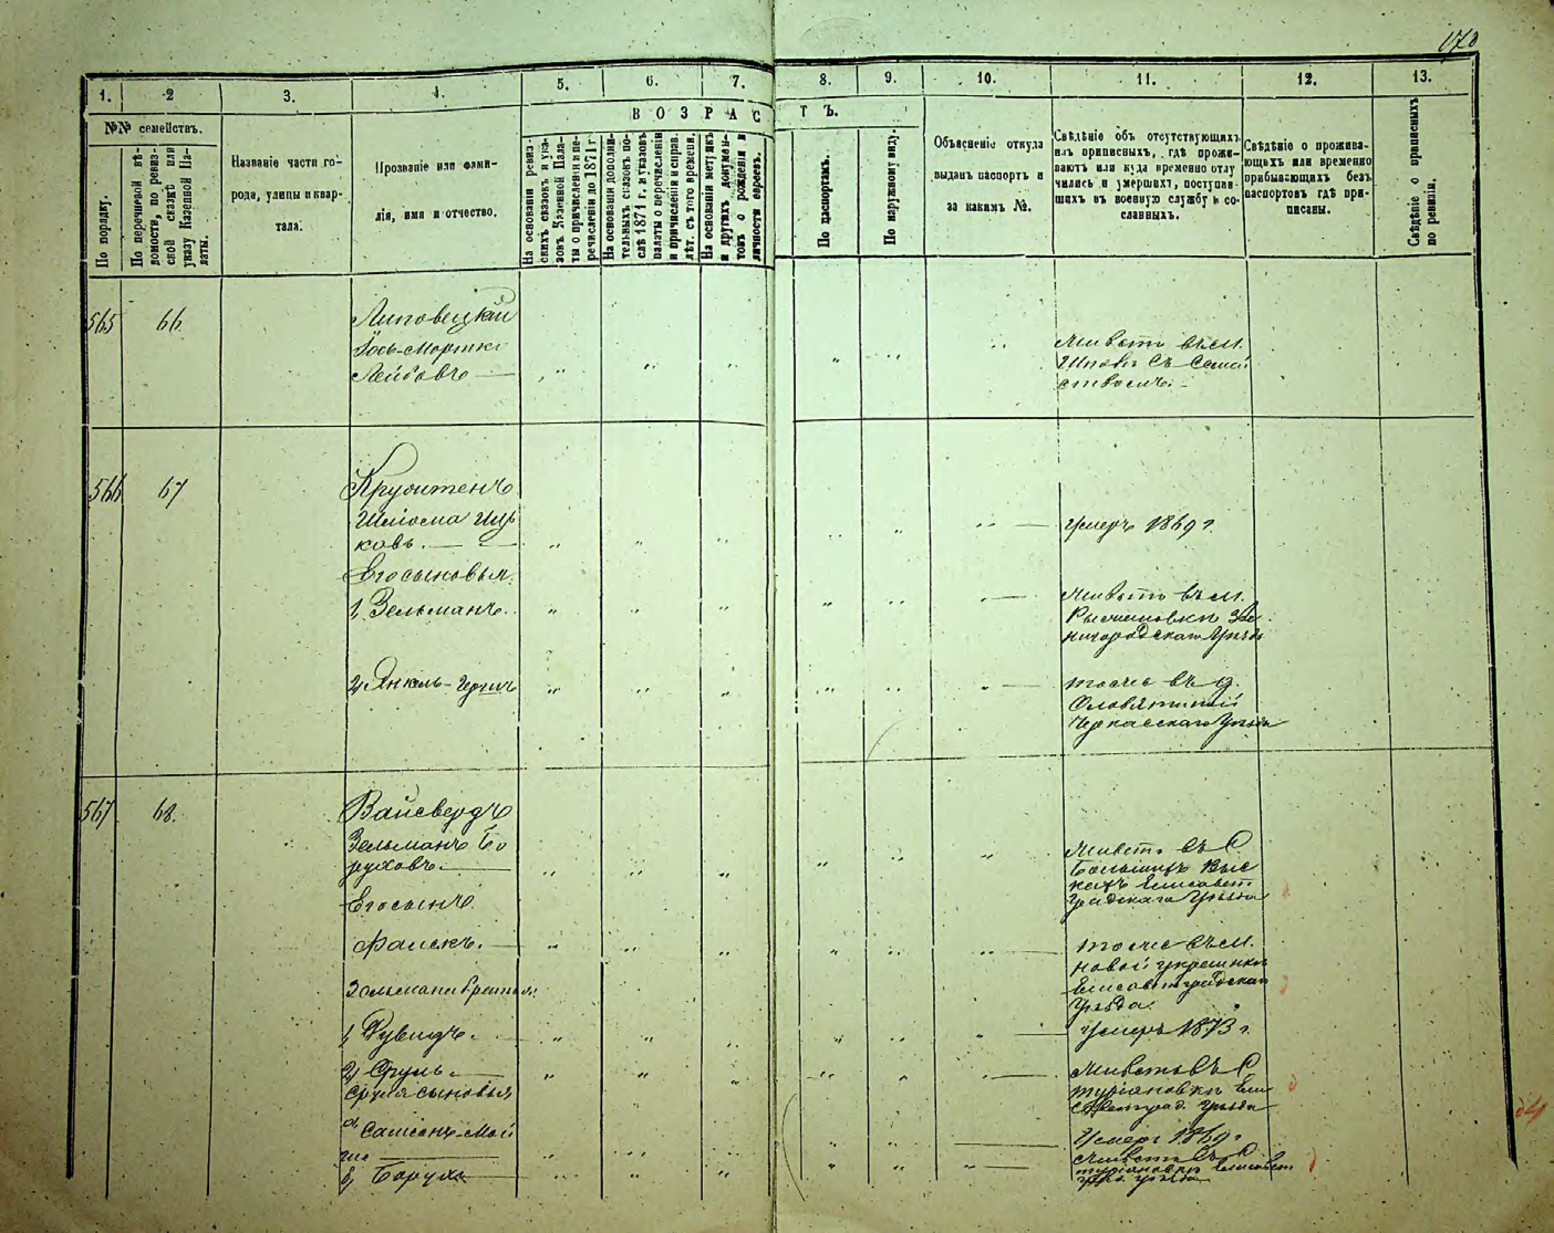 173
1.
2
3.
4.
5.
6.
7.
8.
9.
10.
11.
12.
13.
ВОЗРАСТЪ.
№№ семействъ.
По порядку.
По перечневой вѣ-
домости, по ревиз-
ской сказкѣ или
указу Казенной Па-
латы.
Названіе части го-
рода, улицы и квар-
тала.
Прозваніе или фами-
лія, имя и отчество.
На основаніи ревиз-
скихъ сказокъ и ука-
зовъ Казенной Пала-
ты о причисленіи и пе-
речисленіи до 1871 г.
На основаніи дополни-
тельныхъ сказокъ по-
слѣ 1871 г. и указовъ
палаты о перечисленіи
и причисленіи и справ.
лѣт. съ того времени.
На основаніи метрикъ
и другихъ докумен-
товъ о рожденіи и
личности евреевъ.
По паспортамъ.
По наружному виду.
Объясненіе откуда
выданъ паспортъ и
за какимъ №.
Свѣдѣніе объ отсутствующихъ
изъ приписныхъ, гдѣ прожи-
ваютъ или куда временно отлу
чились и умершихъ, поступив-
шихъ въ военную службу и со-
сланныхъ.
Свѣдѣніе о прожива-
ющихъ или временно
прибывающихъ безъ
паспортовъ гдѣ при-
писаны.
Свѣдѣніе о приписныхъ
по ревизіи.
565 66
Липовецкій
Іось-Мортко
Лейбовъ
Живетъ въ м.
Шполѣ съ семей
ствомъ.
566 67
Круоитенъ
Шліома Иц
ковъ.
умеръ 1869 г.
Его сыновья.
1, Зельманъ.
Живетъ въ м.
Рыжановкѣ Зве
нигородскаго Уѣзда
2, Янкель-Герш
тоже въ д.
Черкасскаго Уѣзда
567 68.
Вайсбердъ
Зельманъ Бо
руховъ.
Живетъ въ С
Большихъ Выс
кахъ Елисавет
градскаго Уѣзда
Его сынъ
Фаисъ.
тоже въ м.
Новой Украинкѣ
Елисаветградскаго
Уѣзда.
Зельмана братья:
1, Дувидъ.
умеръ 1873 г.
2, Сруль.
Живетъ въ С
туріановкѣ Ели
саветград. Уѣзда
Сруля сыновья
а, Самсонъ-Мой
ше
Умеръ 1869 г
б, Борухъ
Живетъ въ С.
туріановкѣ Елисавет
град. уѣзда